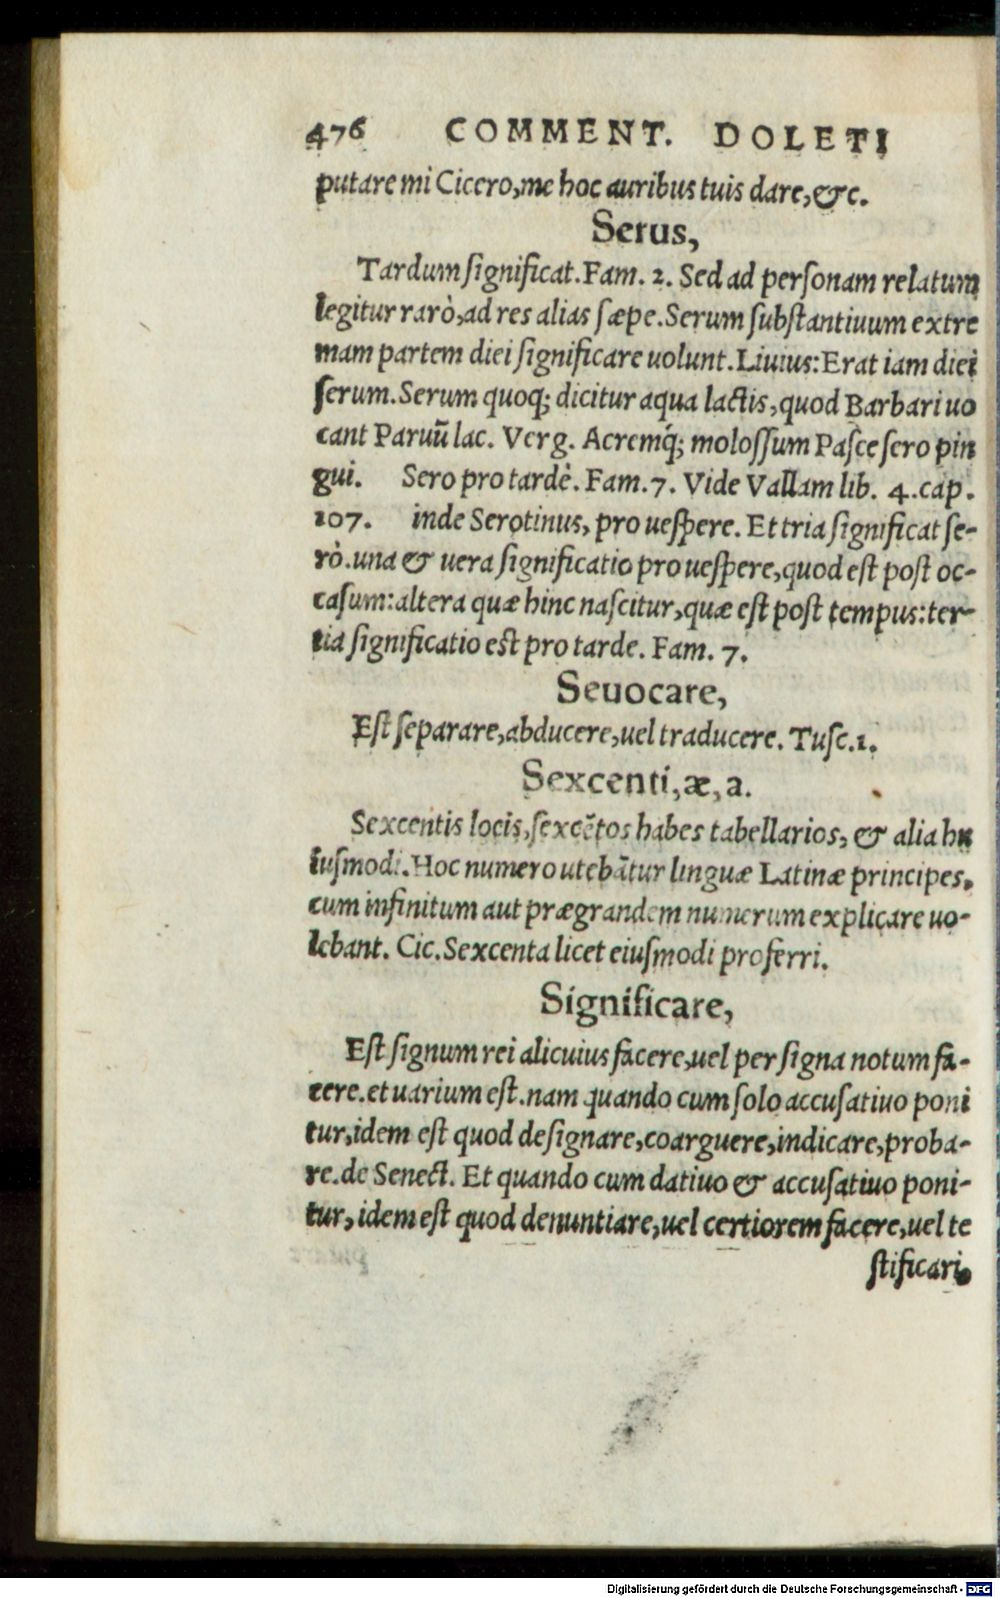 476 COMMENT. DOLETI
putare mi Cicero, me hoc auribus tuis dare, &c.
Serus,
Tardum ſignificat. Fam. 2. Sed ad perſonam relatum
legitur rarò, ad res alias ſæpe. Serum ſubſtantiuum extre
mam partem diei ſignificare uolunt. Liuius: Erat iam diei
ſerum. Serum quoq; dicitur aqua lactis, quod Barbari uo
cant Paruũ lac. Verg. Acremq́; moloſſum Paſce ſero pin
gui. Sero pro tardè. Fam. 7. Vide Vallam lib. 4. cap.
107. inde Serotinus, pro ueſpere. Et tria ſignificat ſe-
rò. una & uera ſignificatio pro ueſpere, quod eſt poſt oc-
caſum: altera quæ hinc naſcitur, quæ eſt poſt tempus: ter-
tia ſignificatio eſt pro tarde. Fam. 7.
Seuocare,
Eſt ſeparare, abducere, uel traducere. Tuſc. 1.
Sexcenti, æ, a.
Sexcentis locis, ſexcẽtos habes tabellarios, & alia hu
iuſmodi. Hoc numero utebãtur linguæ Latinæ principes,
cum infinitum aut prægrandem numerum explicare uo-
lebant. Cic. Sexcenta licet eiuſmodi proferri.
Significare,
Eſt ſignum rei alicuius facere, uel per ſigna notum fa-
cere. et uarium eſt. nam quando cum ſolo accuſatiuo poni
tur, idem eſt quod deſignare, coarguere, indicare, proba-
re. de Senect. Et quando cum datiuo & accuſatiuo poni-
tur, idem eſt quod denuntiare, uel certiorem facere, uel te
ſtificari.
Digitalisierung gefördert durch die Deutsche Forschungsgemeinschaft - DFG